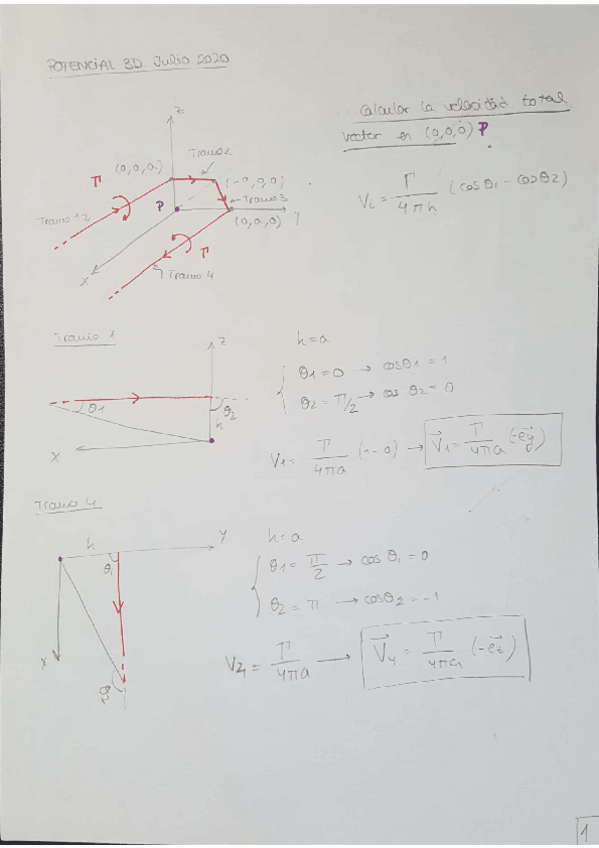 POTENCIAL 3D. Julio 2020
Calcular la velocidad total
vector en (0,0,0) P.
Vi = Γ / 4πh (cosθ1 - cosθ2)
z
(0,0,a)
Tramo 2
(-a,0,a)
Γ
Tramo 1
Tramo 3
P
(0,a,0)
y
Γ
x
Tramo 4
Tramo 1
z
θ1
θ2
h
x
h=a
θ1 = 0 → cosθ1 = 1
θ2 = π/2 → cos θ2 = 0
V1 = Γ / 4πa (1-0) → V1 = Γ / 4πa (-ey)
Tramo 4
h
y
θ1
x
θ2
h=a
θ1 = π/2 → cos θ1 = 0
θ2 = π → cosθ2 = -1
V4 = Γ / 4πa → V4 = Γ / 4πa (-ez)
1